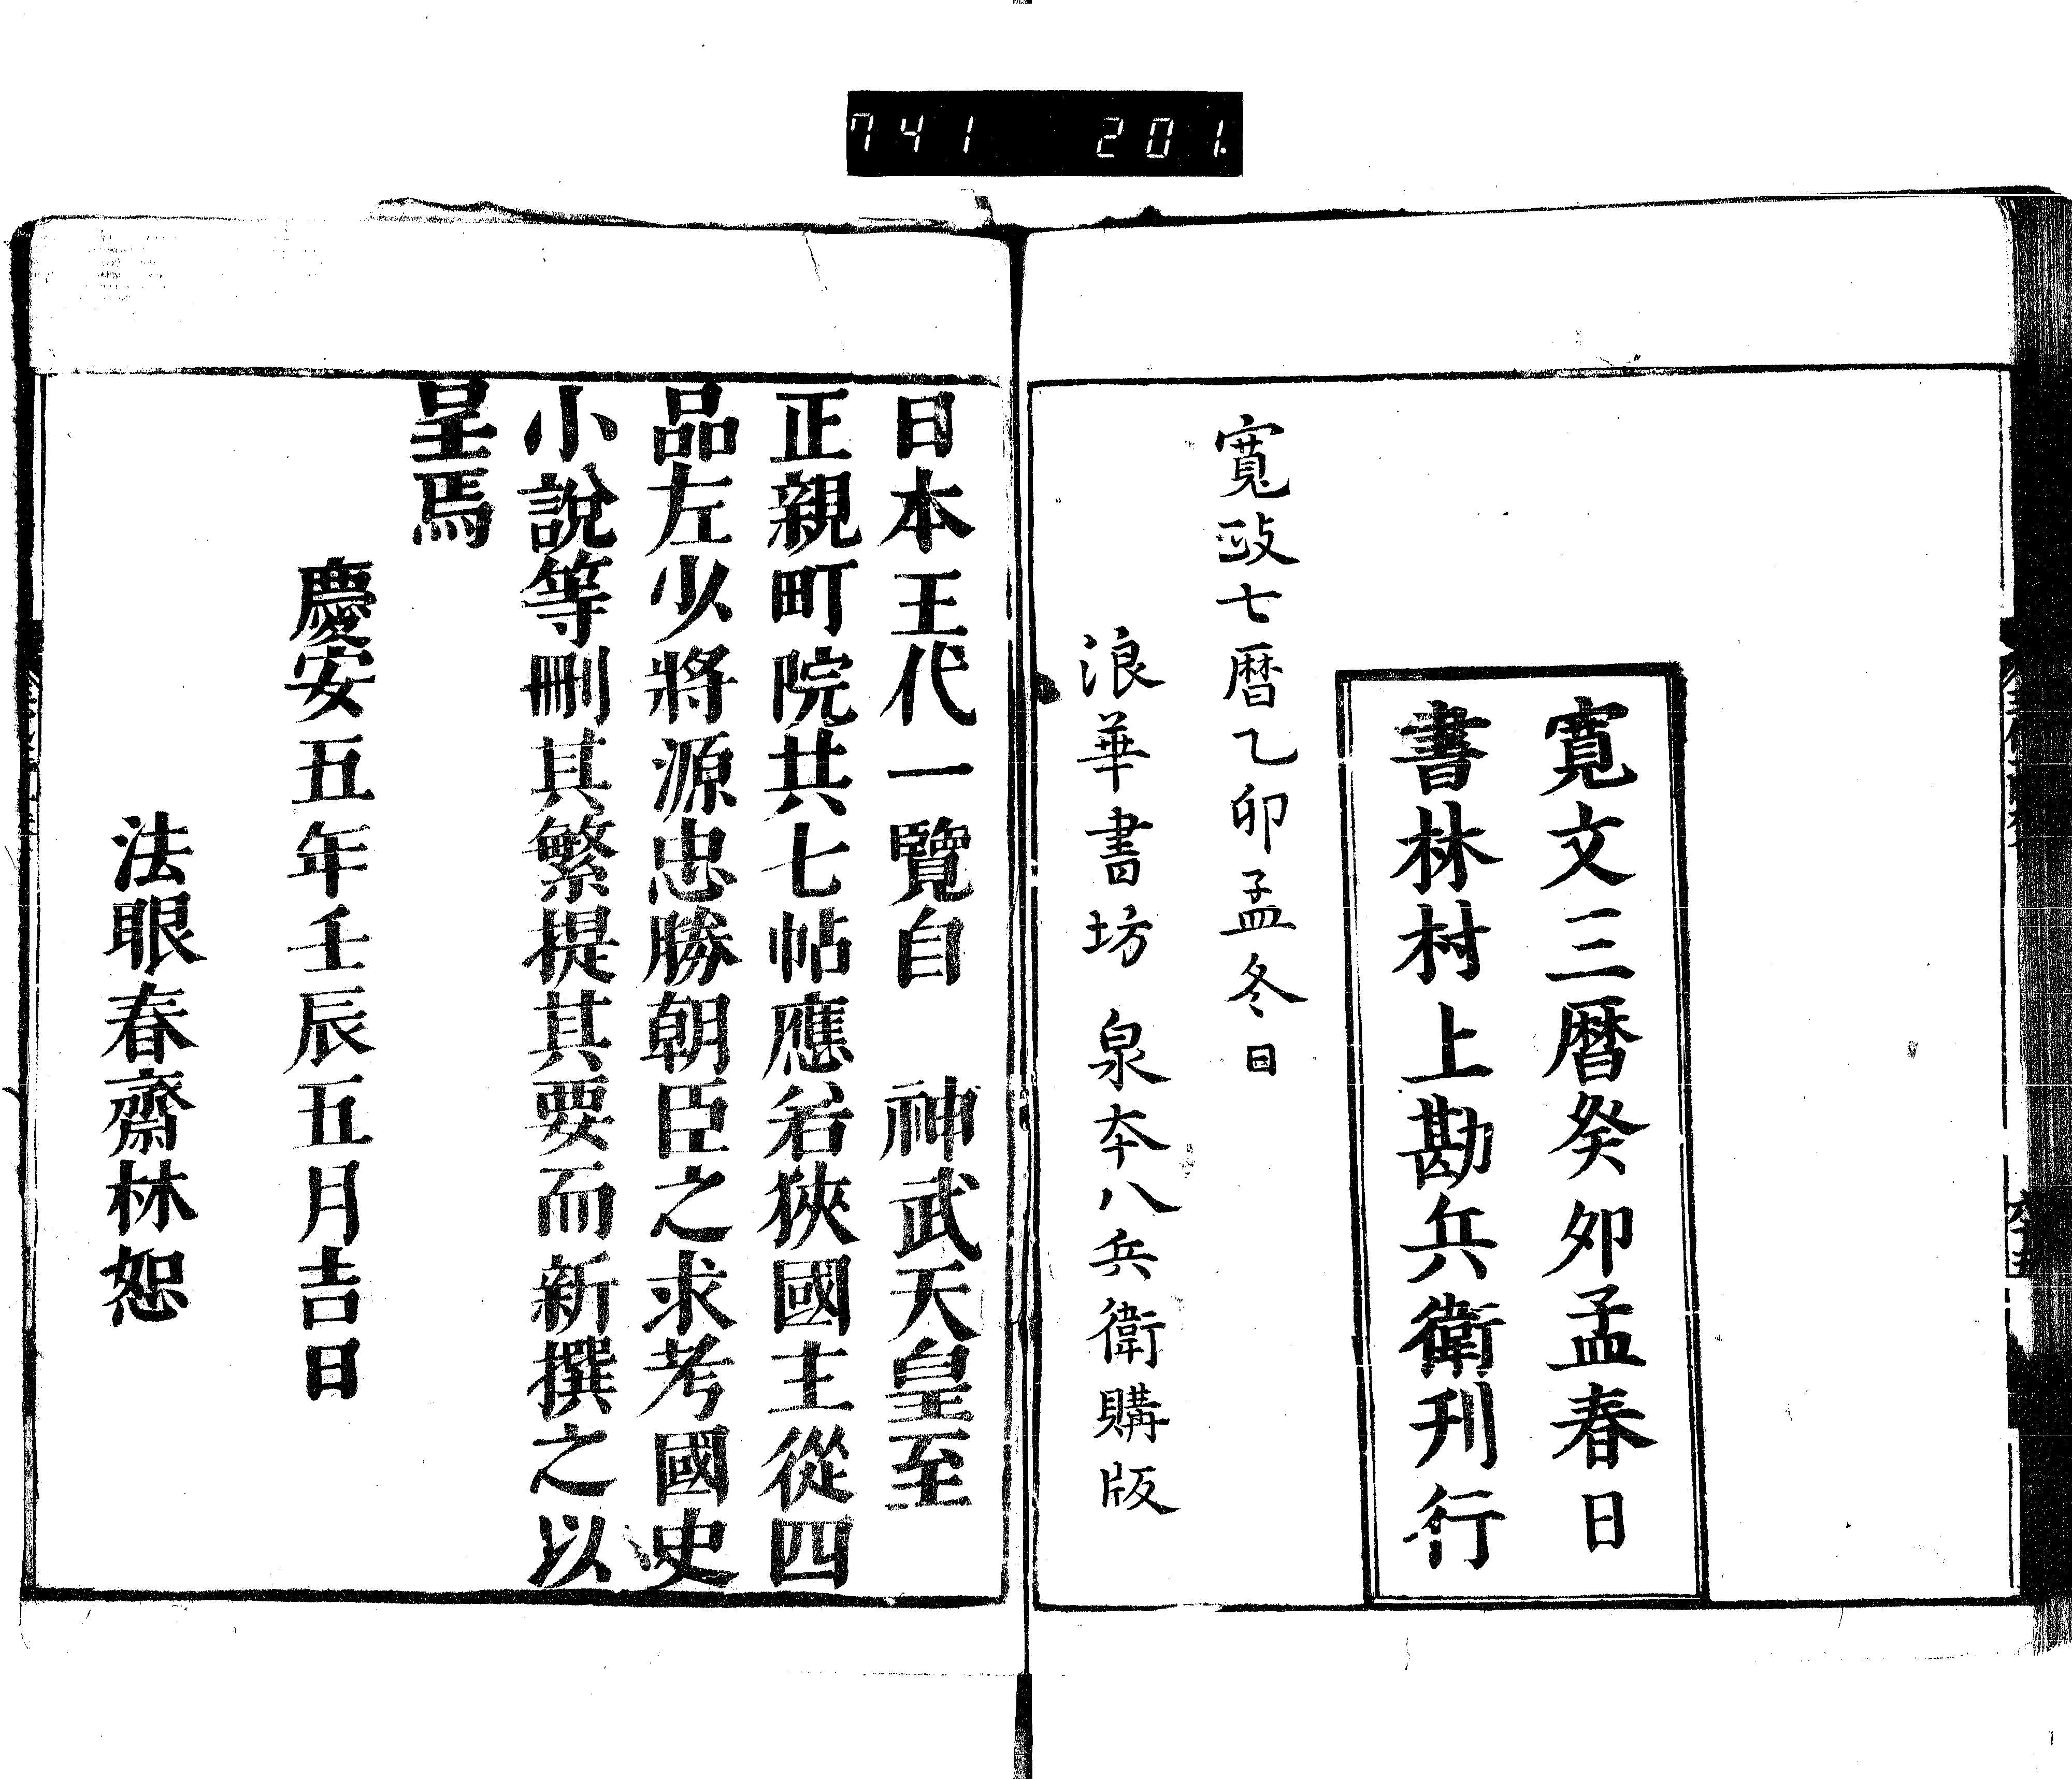 741 201.
寬文三暦癸夘孟春日
書林村上勘兵衛刋行
寬政七暦乙卯孟冬日
浪華書坊 泉本八兵衛購版
日本王代一覽自 神武天皇至
正親町院共七帖應若狹國主從四
品左少將源忠勝朝臣之求考國史
小說等刪其繁提其要而新撰之以
呈焉
慶安五年壬辰五月吉日
法眼春齋林恕